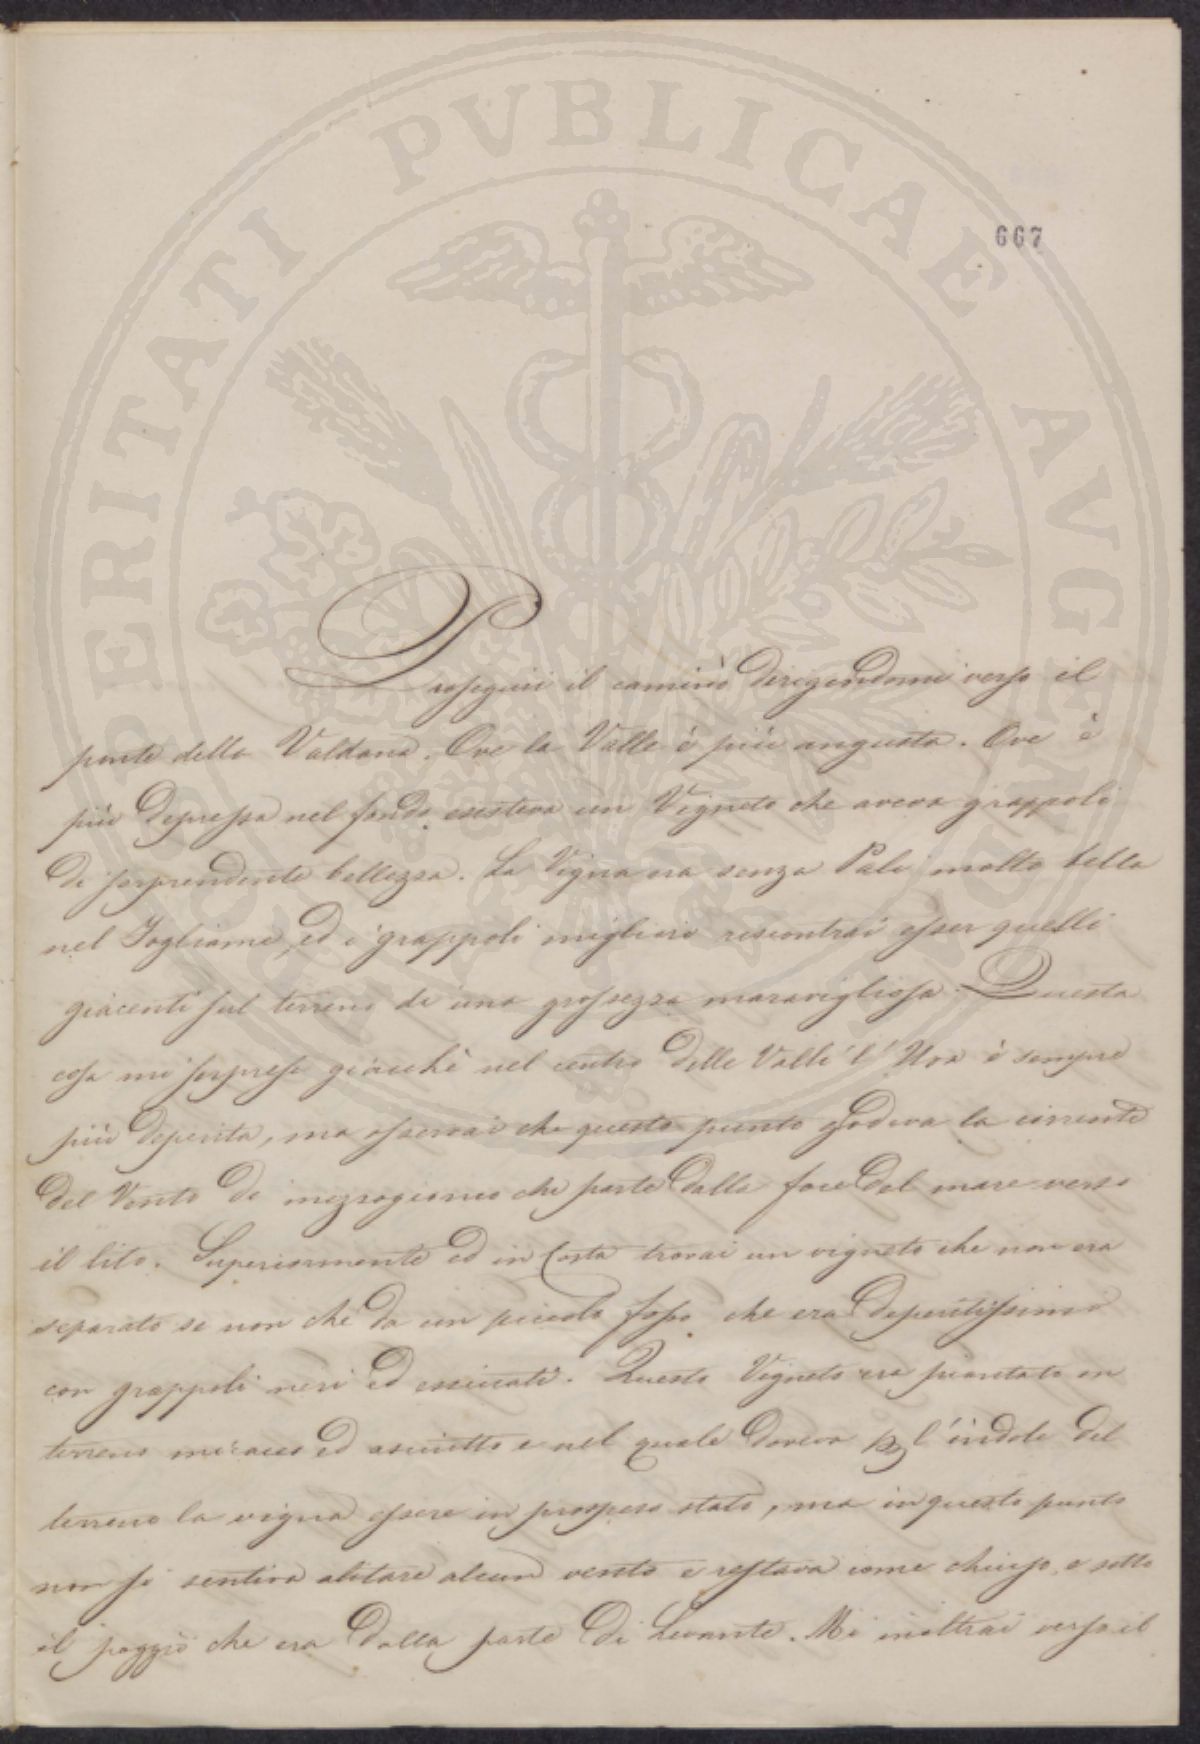 PROSPERITATI PVBLICAE AVGENDAE
667
Proseguii il caminò dirigendomi verso il
ponte della Valdana. Ove la Valle è più angusta. Ove è
più depressa nel fondo esisteva un Vigneto che aveva grappoli
di sorprendente bellezza. La Vigna era senza Pali molto bella
nel Fogliame, ed i grappoli migliori riscontrai esser quelli
giacenti sul terreno di una grossezza maravigliosa. Questa
cosa mi sorprese giacchè nel centro delle Valli l'Uva è sempre
più deperita, ma osservai che questo punto godeva la corrente
del Vento di mezzogiorno che parte dalla foce del mare verso
il lito. Superiormente ed in Costa trovai un vigneto che non era
separato se non che da un piccolo fosso che era deperitissimo
con grappoli neri ed essiccati. Questo Vigneto era piantato in
terreno ed asciutto e nel quale doveva per l'indole del
terreno la vigna essere in prospero stato, ma in questo punto
non si sentiva alitare alcun vento e restava come chiuso e sotto
il poggio che era dalla parte di Levante. Mi inoltrai verso il